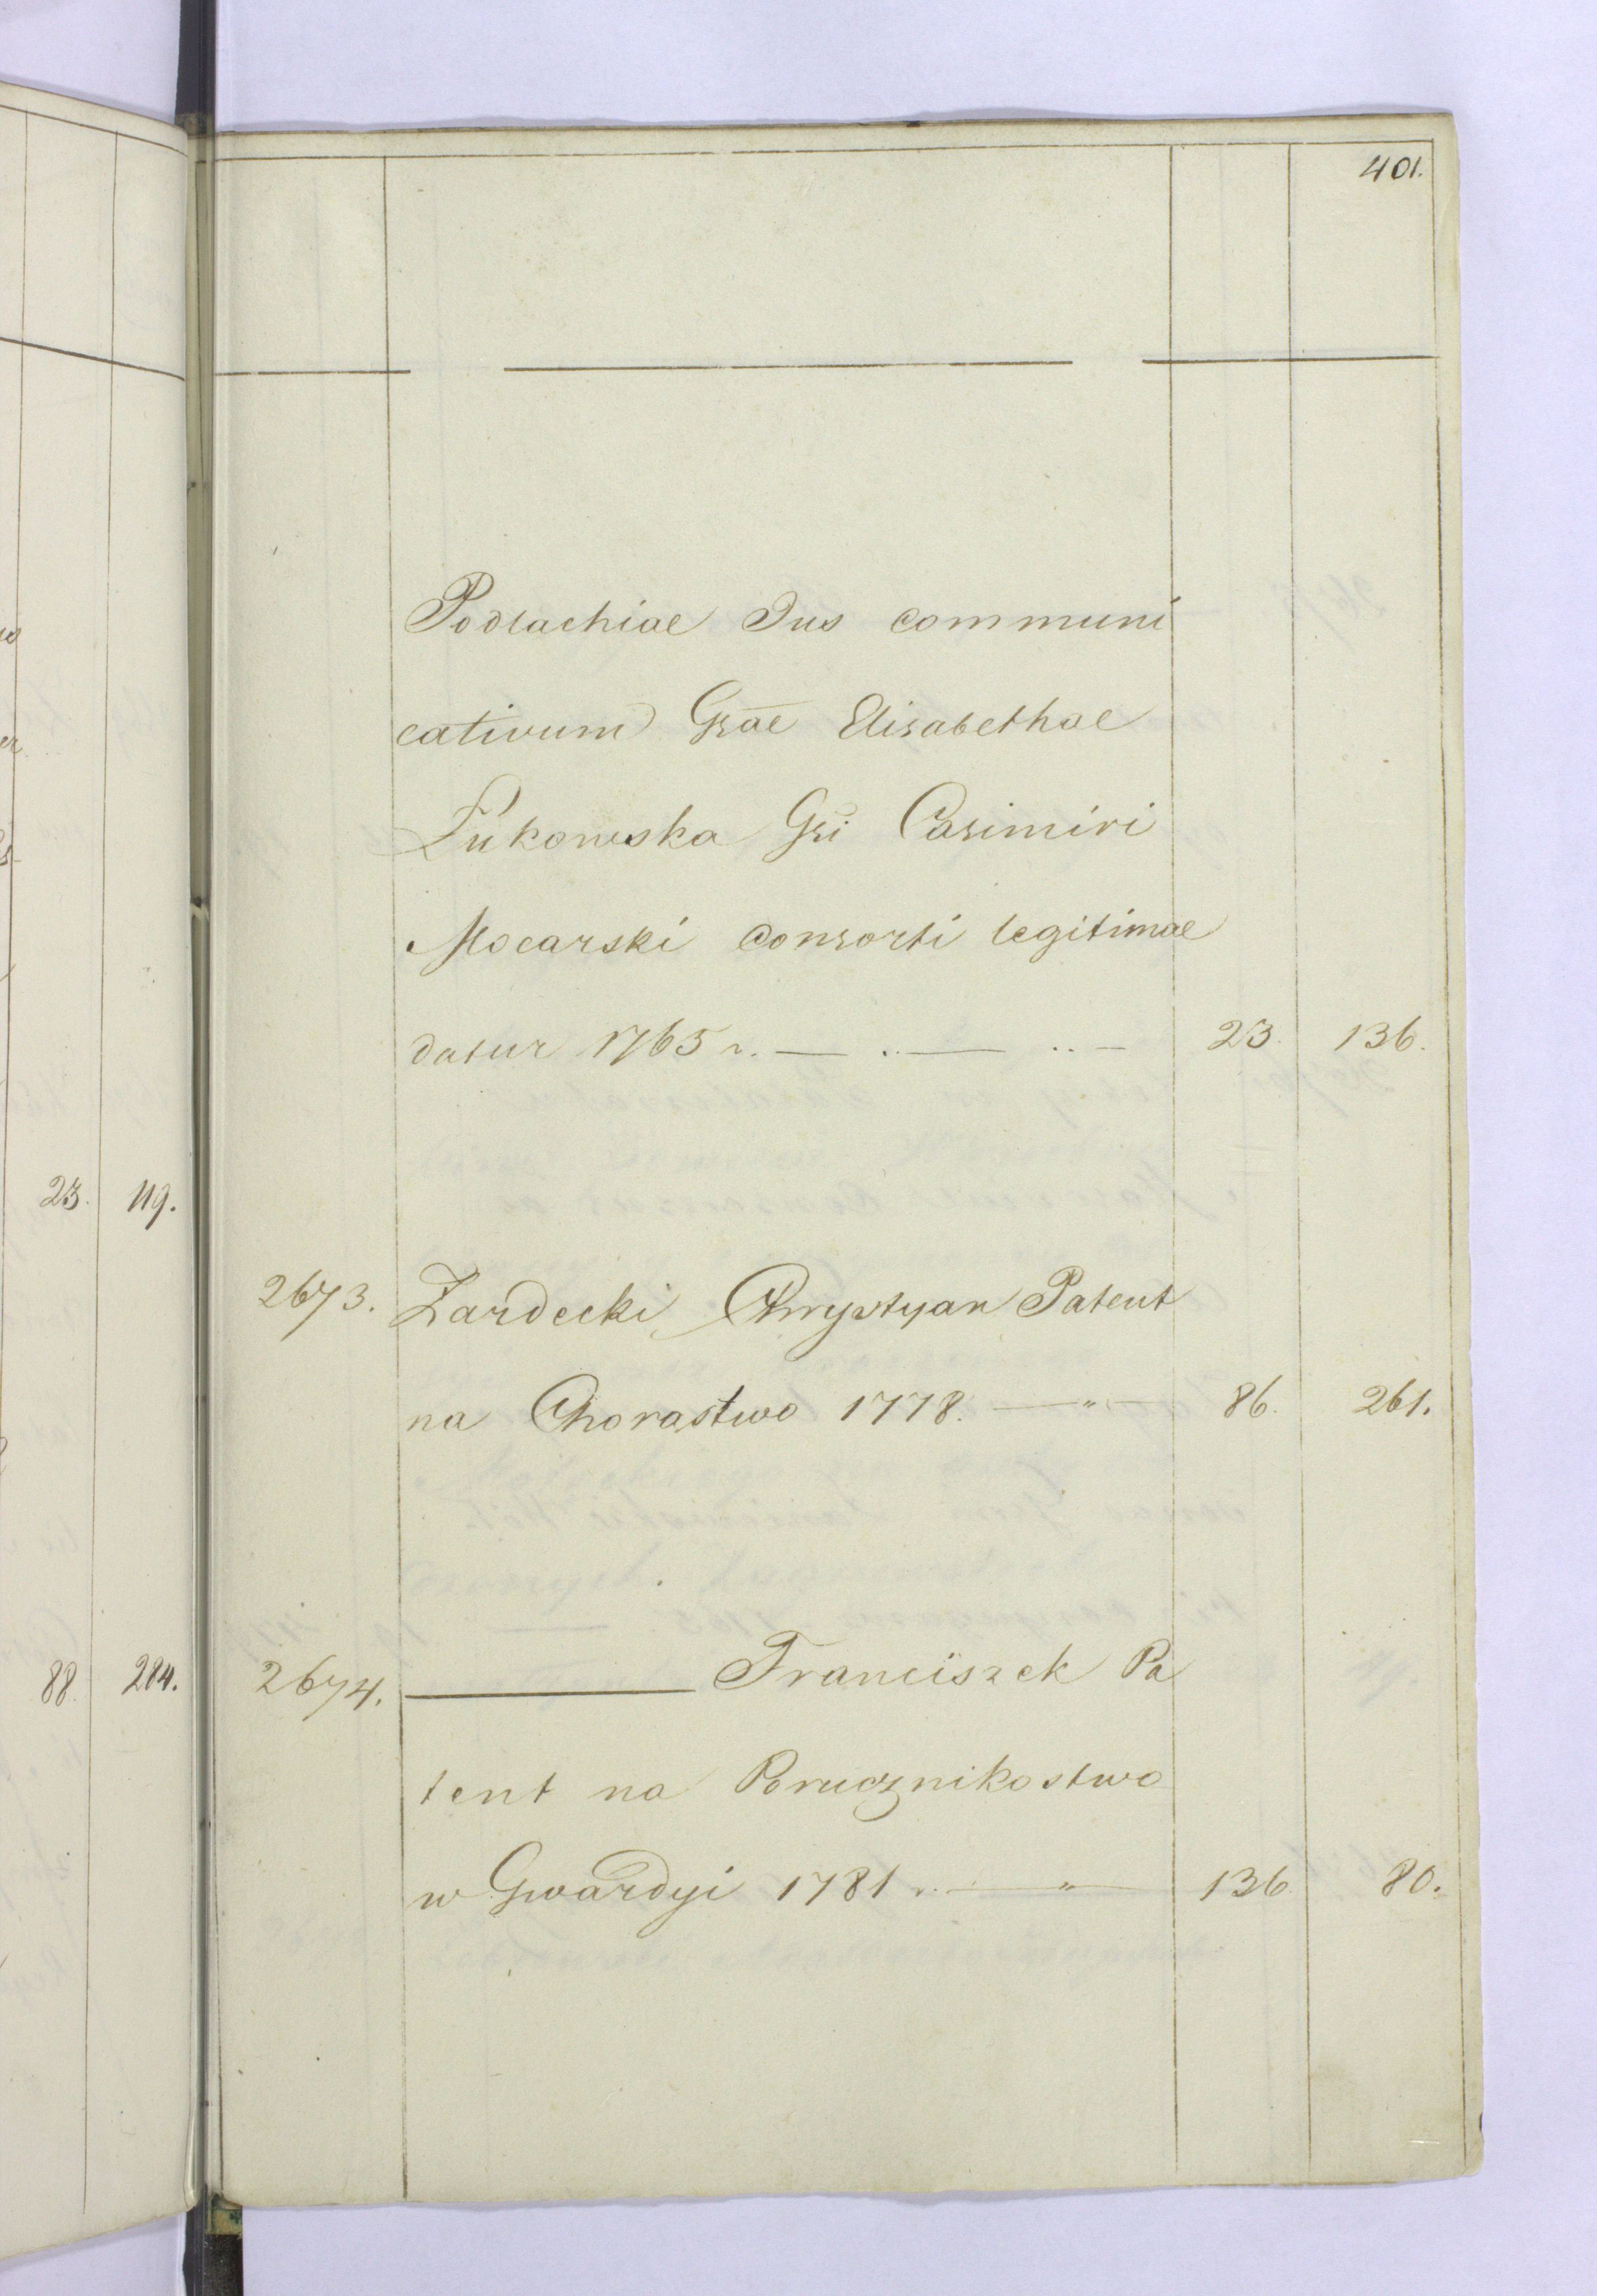 401.
Podlachiae Ius communi
cativum Gsae Elisabethae
Łukowska Gsi Casimiri
Mocarski consorti legitimae
datur 1765 r. — .. — .. — 23. 136.
23. 119.
2673. Zardecki Chrystyan Patent
na Chorastwo 1778. — " — 86. 261.
88. 284.
2674. ——— Franciszek Pa
tent na Porucznikostwo
w Gwardyi 1781 r. — " — 136. 80.